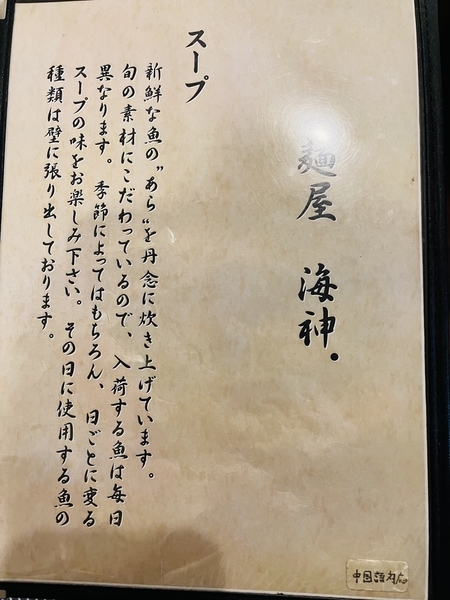 麺屋 海神.
スープ
新鮮な魚の"あら"を丹念に炊き上げています。
旬の素材にこだわっているので、入荷する魚は毎日
異なります。季節によってはもちろん、日ごとに変る
スープの味をお楽しみ下さい。その日に使用する魚の
種類は壁に張り出しております。
中国語対応